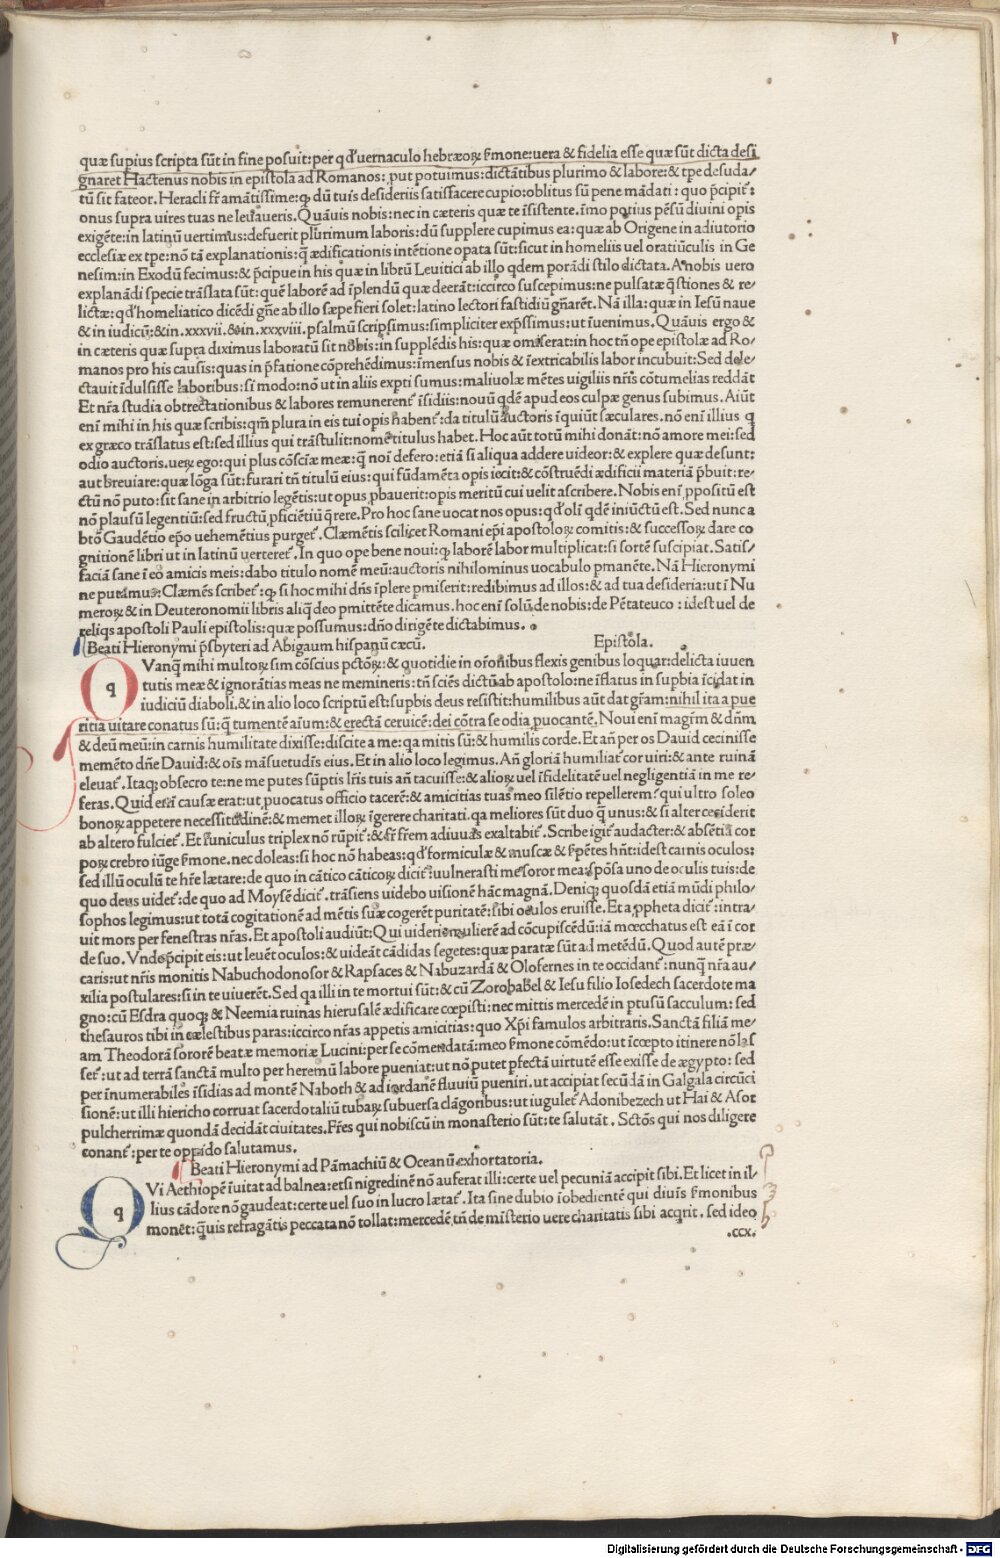 quæ supius scripta sūt in fine posuit: per qđ uernaculo hebræoꝝ ẜmone: uera & fidelia esse quæ sūt dicta desi
gnaret Hactenus nobis in epistola ad Romanos: ꝓut potuimus: dictātibus plurimo & labore: & tpe desuda/
tū sit fateor. Heracli fr̄ amātissime: ꝙ dū tuis desideriis satisfacere cupio: oblitus sū pene mādati: quo p̄cipit̄:
onus supra uires tuas ne leuaueris. Quāuis nobis: nec in cæteris quæ te īsistente. īmo potius pēsū diuini opis
exigēte: in latinū uertimus: defuerit plurimum laboris: dū supplere cupimus ea: quæ ab Origene in adiutorio
ecclesiæ ex tpe: nō tā explanationis: q̄ ædificationis intētione opata sūt: sicut in homeliis uel oratiūculis in Ge
nesim: in Exodū fecimus: & p̄cipue in his quæ in librū Leuitici ab illo qdem porādi stilo dictata. A nobis uero
explanādi specie trāslata sūt: quē laborē ad īplendū quæ deerāt: iccirco suscepimus: ne pulsatæ q̄stiones & re/
lictæ: qđ homeliatico dicēdi gn̄e ab illo sæpe fieri solet: latino lectori fastidiū gn̄arēt. Nā illa: quæ in Iesū naue
& in iudicū: & in .xxxvii. & in .xxxviii. psalmū scripsimus: simpliciter exp̄ssimus: ut īuenimus. Quāuis ergo &
in cæteris quæ supra diximus laboratū sit nobis: in supplēdis his: quæ omiserat: in hoc tn̄ ope epistolæ ad Ro/
manos pro his causis: quas in p̄fatione cōprehēdimus: īmensus nobis & īextricabilis labor incubuit: Sed dele/
ctauit īdulsisse laboribus: si modo: nō ut in aliis expti sumus: maliuolæ mētes uigiliis nr̄is cōtumelias reddāt
Et nr̄a studia obtrectationibus & labores remunerent̄ īsidiis: nouū qdē apud eos culpæ genus subimus. Aiūt
enī mihi in his quæ scribis: qm̄ plura in eis tui opis habent̄: da titulū auctoris īquiūt sæculares. nō enī illius q
ex græco trāslatus est: sed illius qui trāstulit: nomē titulus habet. Hoc aūt totū mihi donāt: nō amore mei: sed
odio auctoris. ueꝝ ego: qui plus cōsciæ meæ: q̄ noī defero: etiā si aliqua addere uideor: & explere quæ desunt:
aut breuiare: quæ lōga sūt: furari tn̄ titulū eius: qui fūdamēta opis iecit: & cōstruēdi ædificii materiā p̄buit: re/
ctū nō puto: sit sane in arbitrio legētis: ut opus ꝓbauerit: opis meritū cui uelit ascribere. Nobis enī ꝓpositū est
nō plausū legentiū: sed fructū ꝓficiētiū q̄rere. Pro hoc sane uocat nos opus: qđ olī qdē iniūctū est. Sed nunc a
bt̄o Gaudētio ep̄o uehemētius purget̄. Clæmētis scilicet Romani ep̄i apostoloꝝ comitis: & successoꝝ dare co
gnitionē libri ut in latinū uerteret̄. In quo ope bene noui: ꝙ laborē labor multiplicat: si sortē suscipiat. Satis/
faciā sane ī eo amicis meis: dabo titulo nomē meū: auctoris nihilominus uocabulo pmanēte. Nā Hieronymi
ne putemus: Clæmēs scribet̄: ꝙ si hoc mihi dn̄s īplere pmiserit: redibimus ad illos: & ad tua desideria: ut ī Nu
meroꝝ & in Deuteronomii libris aliq̄ deo pmittēte dicamus. hoc enī solū de nobis: de Pētateuco: idest uel de
reliqs apostoli Pauli epistolis: quæ possumus: dn̄o dirigēte dictabimus.
Beati Hieronymi p̄sbyteri ad Abigaum hispanū cæcū. Epistola.
q Vanq̄ mihi multoꝝ sim cōscius pctōꝝ: & quotidie in or̄onibus flexis genibus loquar: delicta iuuen
tutis meæ & ignorātias meas ne memineris: tn̄ sciēs dictū ab apostolo: ne īflatus in supbia īcidat in
iudiciū diaboli. & in alio loco scriptū est: supbis deus resistit: humilibus aūt dat gr̄am: nihil ita a pue
ritia uitare conatus sū: q̄ tumentē aīum: & erectā ceruicē: dei cōtra se odia ꝓuocantē. Noui enī magr̄m & dn̄m
& deū meū: in carnis humilitate dixisse: discite a me: qa mitis sū: & humilis corde. Et an̄ per os Dauid cecinisse
memēto dn̄e Dauid: & oīs māsuetudīs eius. Et in alio loco legimus. An̄ gloriā humiliat̄ cor uiri: & ante ruinā
eleuat̄. Itaq; obsecro te: ne me putes sūptis lr̄is tuis an̄ tacuisse: & alioꝝ uel īfidelitatē uel negligentiā in me re/
feras. Quid enī causæ erat: ut ꝓuocatus officio tacerē: & amicitias tuas meo silētio repellerem? qui ultro soleo
bonoꝝ appetere necessitudinē: & memet illoꝝ īgerere charitati. qa meliores sūt duo q̄ unus: & si alter ceciderit
ab altero fulciet̄. Et funiculus triplex nō rūpit̄: & fr̄ fr̄em adiuuās exaltabit̄. Scribe igit̄ audacter: & absētiā cor
poꝝ crebro iūge ẜmone. nec doleas: si hoc nō habeas: qđ formiculæ & muscæ & ẜpētes hn̄t: idest carnis oculos:
sed illū oculū te hr̄e lætare: de quo in cātico cāticoꝝ dicit̄: uulnerasti me soror mea spōsa uno de oculis tuis: de
quo deus uidet̄: de quo ad Moysē dicit̄. trāsiens uidebo uisionē hāc magnā. Deniq; quosdā etiā mūdi philo/
sophos legimus: ut totā cogitationē ad mētis suæ cogerēt puritatē: sibi oculos eruisse. Et a ꝓpheta dicit̄: intra/
uit mors per fenestras nr̄as. Et apostoli audiūt: Qui uiderit mulierē ad cōcupiscēdū: iā mœchatus est eā ī cor
de suo. Vnde p̄cipit eis: ut leuēt oculos: & uideāt cādidas segetes: quæ paratæ sūt ad metēdū. Quod autē præ/
caris: ut nr̄is monitis Nabuchodonosor & Rapsaces & Nabuzardā & Olofernes in te occidant̄: nunq̄ nr̄a au/
xilia postulares: si in te uiuerēt. Sed qa illi in te mortui sūt: & cū Zorobabel & Iesu filio Iosedech sacerdote ma
gno: cū Esdra quoq; & Neemia ruinas hierusalē ædificare cœpisti: nec mittis mercedē in ptusū sacculum: sed
thesauros tibi in cælestibus paras: iccirco nr̄as appetis amicitias: quo Xp̄i famulos arbitraris. Sanctā filiā me/
am Theodorā sororē beatæ memoriæ Lucini: per se cōmendatā: meo ẜmone cōmēdo: ut īcœpto itinere nō las
set̄: ut ad terrā sanctā multo per heremū labore pueniat: ut nō putet pfectā uirtutē esse exisse de ægypto: sed
per īnumerabiles īsidias ad montē Naboth & ad iordanē fluuiū pueniri. ut accipiat secūdā in Galgala circūci
sionē: ut illi hiericho corruat sacerdotaliū tubaꝝ subuersa clāgoribus: ut iugulet̄ Adonibezech ut Hai & Asor
pulcherrimæ quondā decidāt ciuitates. Fr̄es qui nobiscū in monasterio sūt: te salutāt. Sctōs qui nos diligere
conant̄: per te oppido salutamus.
Beati Hieronymi ad Pāmachiū & Oceanū exhortatoria.
q Vi Aethiopē īuitat ad balnea: etsi nigredinē nō auferat illi: certe uel pecuniā accipit sibi. Et licet in il/
lius cādore nō gaudeat: certe uel suo in lucro lætat̄. Ita sine dubio īobedientē qui diuīs ẜmonibus
monēt: q̄uis refragātis peccata nō tollat: mercedē tn̄ de misterio uere charitatis sibi acqrit. sed ideo
.ccx.
Digitalisierung gefördert durch die Deutsche Forschungsgemeinschaft - DFG